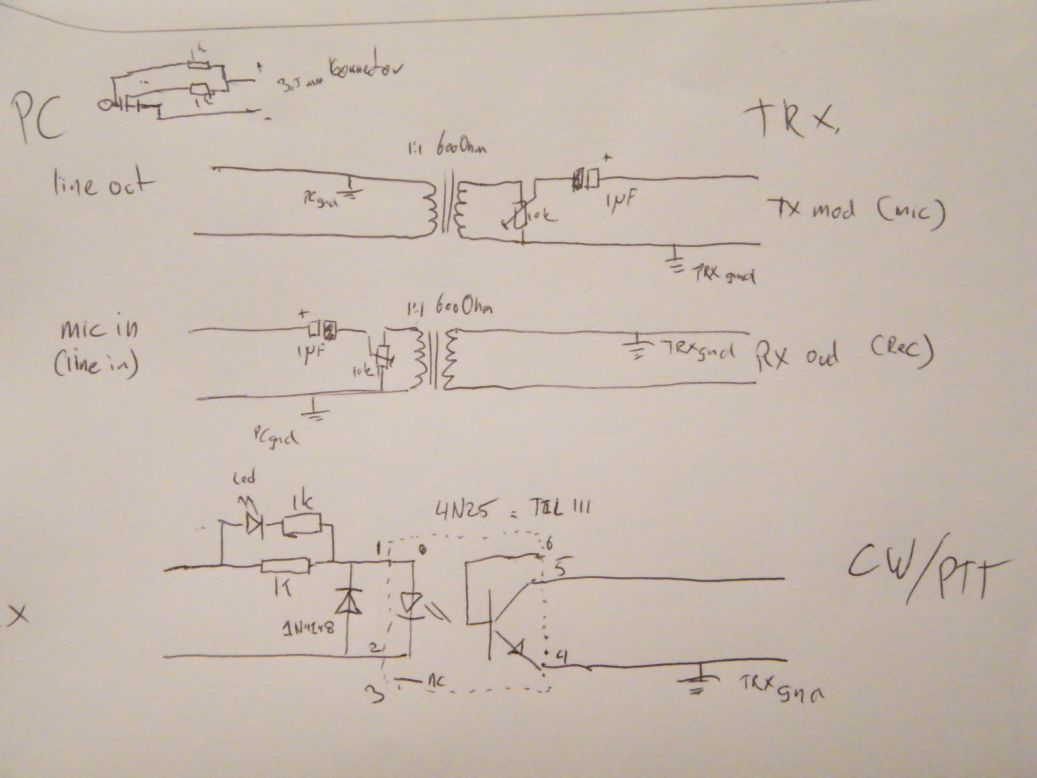 1k
+
3,5 mm Konnector
1k
-
PC
TRX.
1:1 600Ohm
+
line out
PCgnd
10k
1µF
TX mod (mic)
TRX gnd
mic in
(line in)
+
1µF
1:1 600Ohm
10k
TRXgnd
RX out (Rec)
PCgnd
Led
1k
4N25 = TIL 111
1
6
5
CW/PTT
1K
1N4148
X
2
4
3
nc
TRX gnd